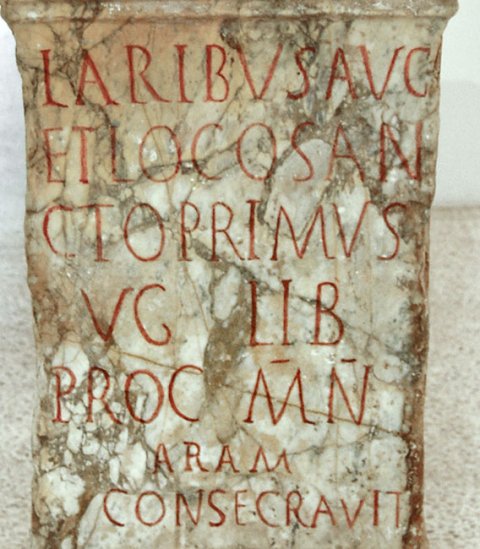 LARIBVSAVG
ETLOCOSAN
CTOPRIMVS
VG LIB
PROC M̄N̄
ARAM
CONSECRAVIT